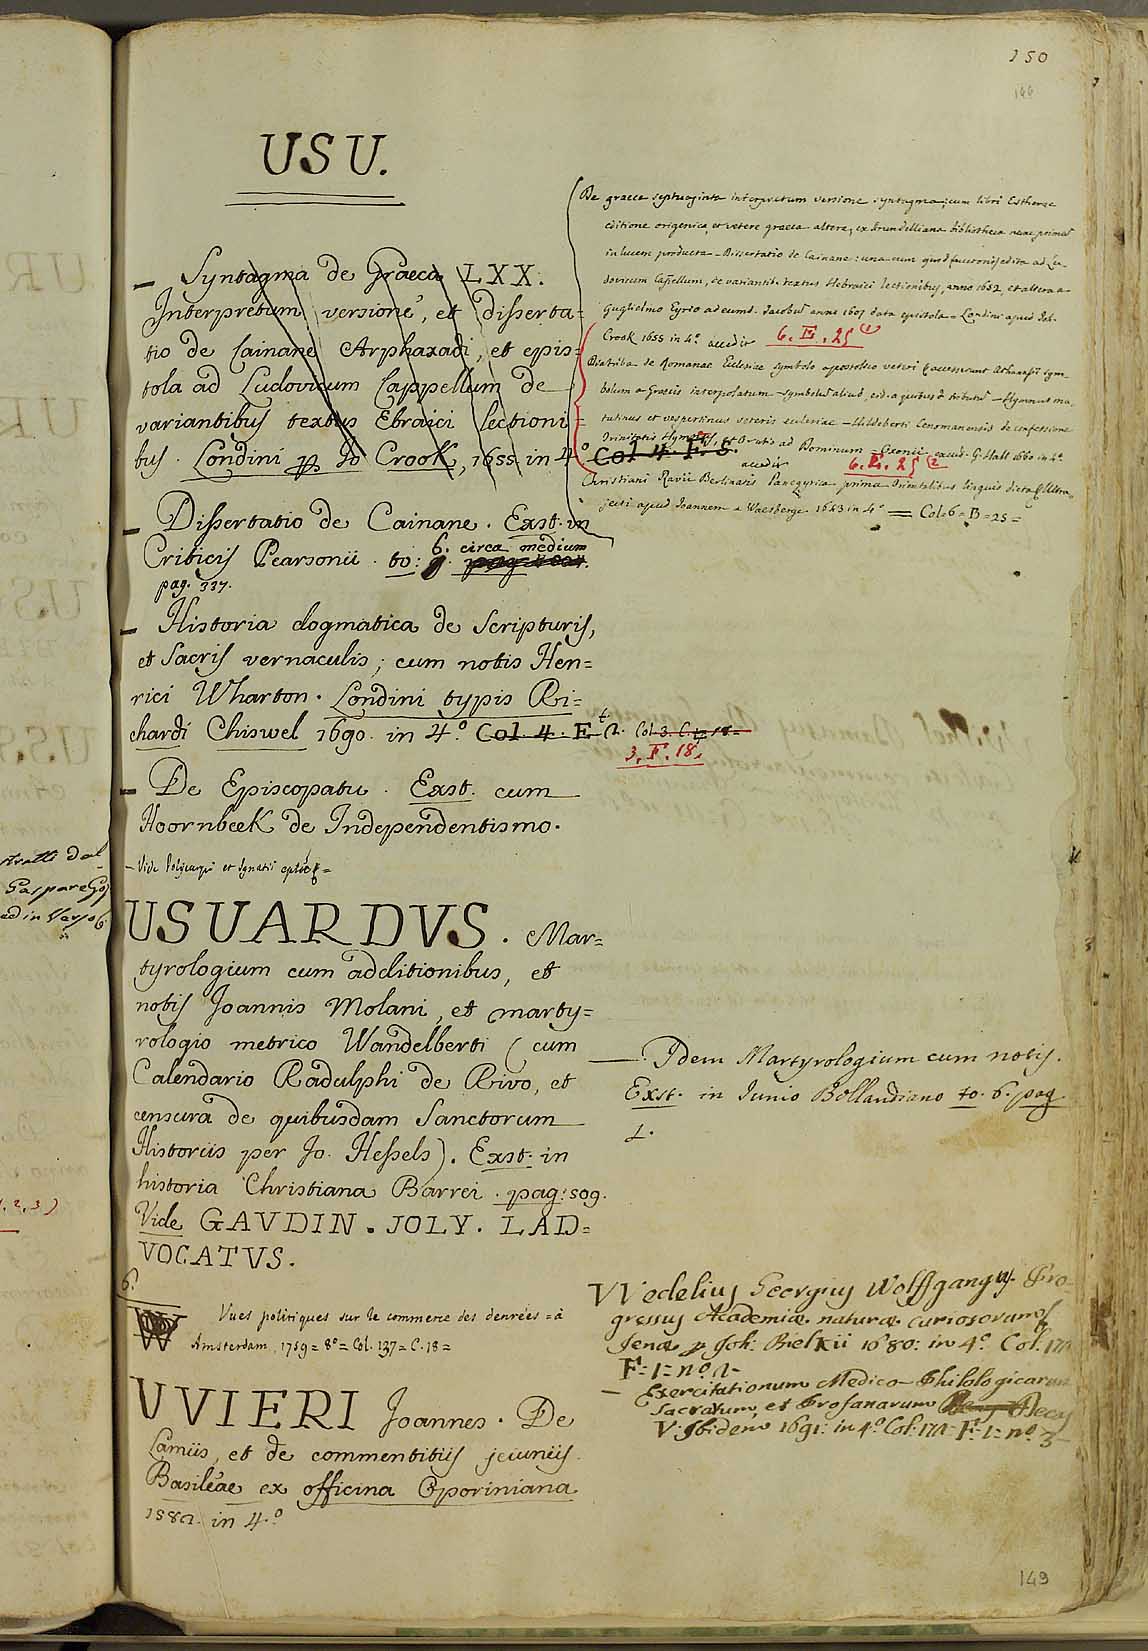 150
USU.
– Syntagma de Græca LXX.
Interpretum versione, et disserta=
tio de Cainane Arphaxadi, et epis=
tola ad Ludovicum Cappellum de
variantibus textus Ebraici lectioni=
bus. Londini p Jo Crook, 1655 in 4.º
– Dissertatio de Cainane. Exst. in
Criticis Pearsonii. to: 6. circa medium
pag. 337.
– Historia dogmatica de Scripturis,
et Sacris vernaculis; cum notis Hen=
rici Wharton. Londini typis Ri=
chardi Chiswel 1690. in 4.º Col. 4. E
– De Episcopatu. Exst. cum
Hoornbeek de Independentismo.
– Vide Polycarpi et Ignatii
USUARDVS. Mar=
tyrologium cum additionibus, et
notis Joannis Molani, et marty=
rologio metrico Wandelberti (cum
Calendario Radulphi de Rivo, et
censura de quibusdam Sanctorum
Historiis per Jo. Hessels). Exst. in
historia Christiana Barrei. pag: 509.
Vide GAVDIN. JOLY. LAD=
VOCATVS.
6.
W Vues politiques sur le commerce des denrées = à
Amsterdam, 1759 = 8º = Col. 137 = C. 18 =
VVIERI Joannes. De
Lamiis, et de commentitiis jejuniis.
Basileæ ex officina Oporiniana
1582. in 4.º
De græca septuaginta interpretum versione syntagma; cum libri Estheræ
editione origenica, et vetere græca altera, ex Arundelliana bibliotheca nunc primum
in lucem producta – Dissertatio de Cainane: una cum
dovicum Capellum, de variantib. textus Hebraici lectionibus, anno 1652, et altera a
Guglielmo Eyrio ad eumd. Jacobum anno 1607 data epistola – Londini apud Joh.
Crook 1655 in 4.º accedit 6. E. 25 (1)
Diatriba de Romanae Ecclesiae symbolo apostolico veteri Athanasii sym=
bolum a Graecis interpolatum – symbolum aliud, – Hymnus ma=
tutinus et vespertinus veteris ecclesiae – Hildeberti Cenomanensis de confessione
Trinitatis Hymnus, et Oratio ad Dominum – Oxonii, G. Hall 1660 in 4.º
Col 4. F. 5.
accedit 6. E. 25 (2
Christiani Ravii Berlinatis Panegyrica prima Orientalibus linguis dicta Ultra=
jecti apud Joannem a Waesberge 1643 in 4.º = Col. 6 = B = 25 =
Col. 3. C. 18 =
3. F. 18.
—. Idem Martyrologium cum notis.
Exst. in Junio Bollandiano to. 6. pag
1.
VVedelius Georgius Wolffgangus. Pro=
gressus Academiæ naturæ curiosorum
Jenæ p Joh: Bielkii 1680: in 4.º Col. 172
F = 1 = nº. 2 –
– Exercitationum Medico–Philologicarum
Sacrarum, et Profanarum Decas
V. Ibidem 1691: in 4.º Col: 172 = F = 1 = nº. 3 –
149